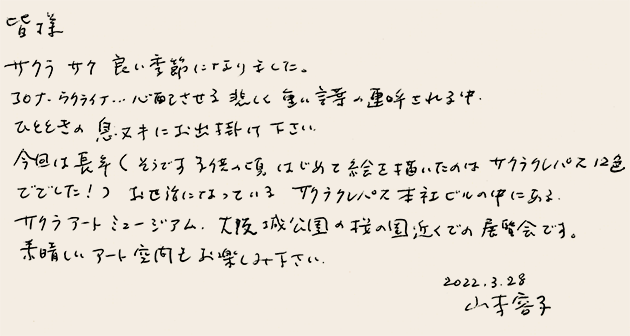 皆様
サクラ サク 良い季節になりました。
コロナ・ウクライナ…心配させる 悲しく重い言葉の連呼される中、
ひとときの息ヌキにお出掛け下さい。
今回は長年(そうです 子供の頃 はじめて絵を描いたのは サクラクレパス 12色
ででした!) お世話になっている サクラクレパス本社ビルの中にある、
サクラアートミュージアム、大阪城公園の桜の園近くでの展覧会です。
素晴しいアート空間をお楽しみ下さい。
2022.3.28
山本容子